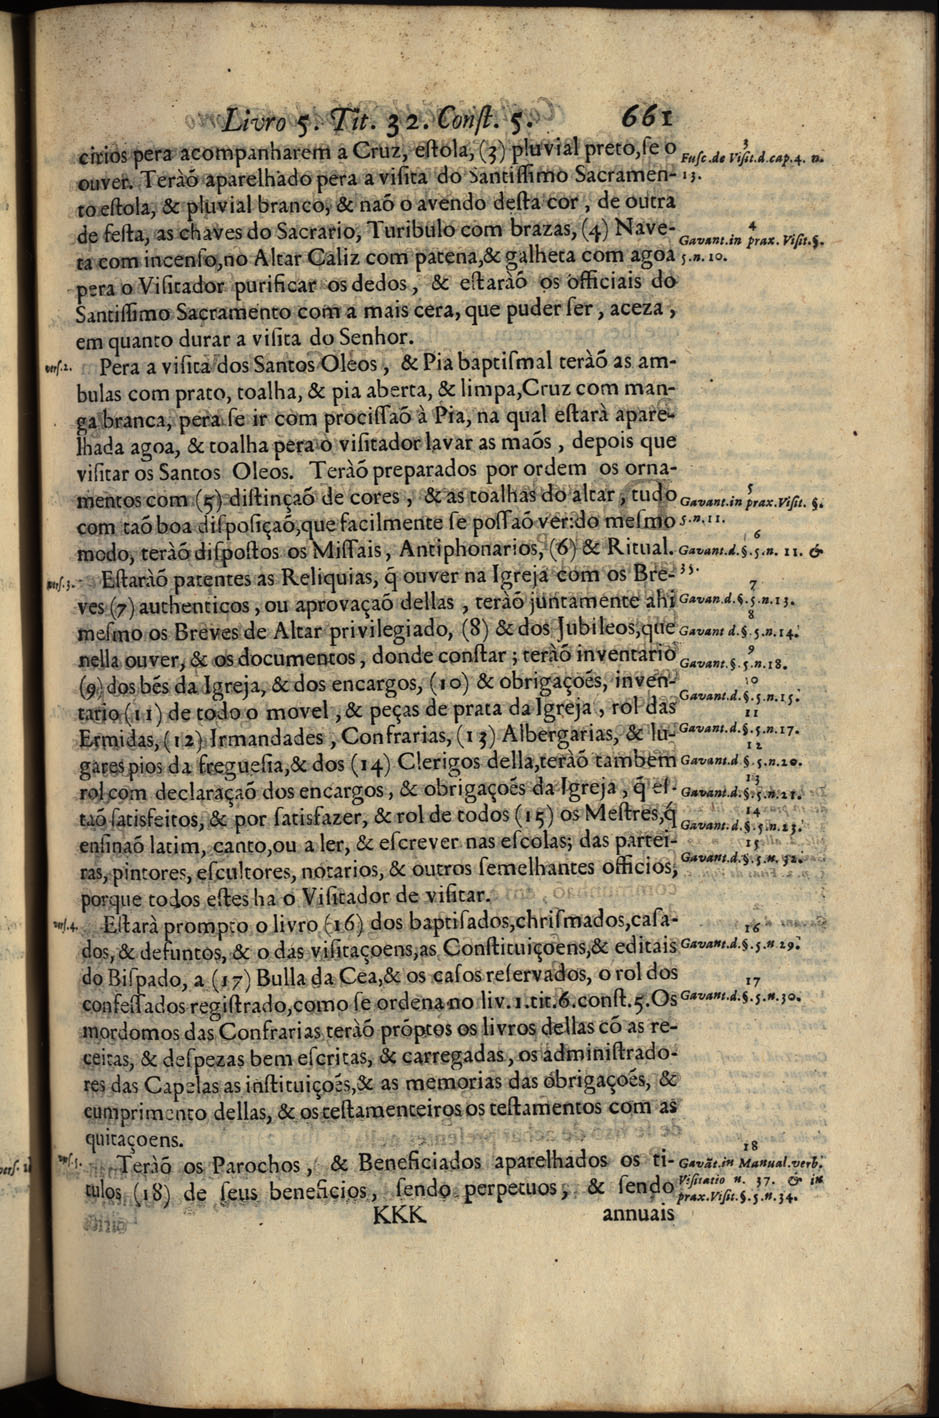 Livro 5. Tit. 32. Const. 5. 661
cirios pera acompanharem a Cruz, estola, (3) pluvial preto, se o
ouver. Teràõ aparelhado pera a visita do Santissimo Sacramen-
to estola, & pluvial branco, & naõ o avendo desta cor, de outra
de festa, as chaves do Sacrario, Turibulo com brazas, (4) Nave-
ta com incenso, no Altar Caliz com patena, & galheta com agoa
pera o Visitador purificar os dedos, & estaràõ os officiais do
Santissimo Sacramento com a mais cera, que puder ser, aceza,
em quanto durar a visita do Senhor.
vers.2. Pera a visita dos Santos Oleos, & Pia baptismal teràõ as am-
bulas com prato, toalha, & pia aberta, & limpa, Cruz com man-
ga branca, pera se ir com procissaõ à Pia, na qual estarà apare-
lhada agoa, & toalha pera o visitador lavar as maõs, depois que
visitar os Santos Oleos. Teràõ preparados por ordem os orna-
mentos com (5) distinçaõ de cores, & as toalhas do altar, tudo
com taõ boa disposiçaõ, que facilmente se possaõ ver: do mesmo
modo, teràõ dispostos os Missais, Antiphonarios, (6) & Ritual.
vers.3. Estaràõ patentes as Reliquias, q̃ ouver na Igreja com os Bre-
ves (7) authenticos, ou aprovaçaõ dellas, teràõ juntamente ahi
mesmo os Breves de Altar privilegiado, (8) & dos Jubileos, que
nella ouver, & os documentos, donde constar; teràõ inventario
(9) dos bẽs da Igreja, & dos encargos, (10) & obrigaçoẽs, inven-
tario (11) de todo o movel, & peças de prata da Igreja, rol das
Ermidas, (12) Irmandades, Confrarias, (13) Albergarias, & lu-
gares pios da freguesia, & dos (14) Clerigos della, teràõ tambem
rol com declaraçaõ dos encargos, & obrigaçoẽs da Igreja, q̃ es-
taõ satisfeitos, & por satisfazer, & rol de todos (15) os Mestres, q̃
ensinaõ latim, canto, ou a ler, & escrever nas escolas; das partei-
ras, pintores, escultores, notarios, & outros semelhantes officios,
porque todos estes ha o Visitador de visitar.
vers.4. Estarà prompto o livro (16) dos baptisados, chrismados, casa-
dos, & defuntos, & o das visitaçoens, as Constituiçoens, & editais
do Bispado, a (17) Bulla da Cea, & os casos reservados, o rol dos
confessados registrado, como se ordena no liv. 1. tit. 6. const. 5. Os
mordomos das Confrarias teràõ prõptos os livros dellas cõ as re-
ceitas, & despezas bem escritas, & carregadas, os administrado-
res das Capelas as instituiçoẽs, & as memorias das obrigaçoẽs, &
cumprimento dellas, & os testamenteiros os testamentos com as
quitaçoens.
vers.5. Teràõ os Parochos, & Beneficiados aparelhados os ti-
tulos (18) de seus beneficios, sendo perpetuos, & sendo
KKK annuais
3
Fusc. de Visit. d. cap. 4. n.
13.
4
Gavant. in prax. Visit. §.
5. n. 10.
5
Gavant. in prax. Visit. §.
5. n. 11.
6
Gavant. d. §. 5. n. 11. &
35.
7
Gavan. d. §. 5. n. 13.
8
Gavant d. §. 5. n. 14.
9
Gavant. §. 5. n. 18.
10
Gavant. d. §. 5. n. 15.
11
Gavant. d. §. 5. n. 17.
12
Gavant. d §. 5. n. 20.
13
Gavant. d. §. 5. n. 21.
14
Gavant. d. §. 5. n. 23.
15
Gavant. d. §. 5. n. 32.
16
Gavant. d. §. 5. n. 29.
17
Gavant. d. §. 5. n. 30.
18
Gavãt. in Manual. verb.
Visitatio n. 37. & in
prax. Visit. §. 5. n. 34.